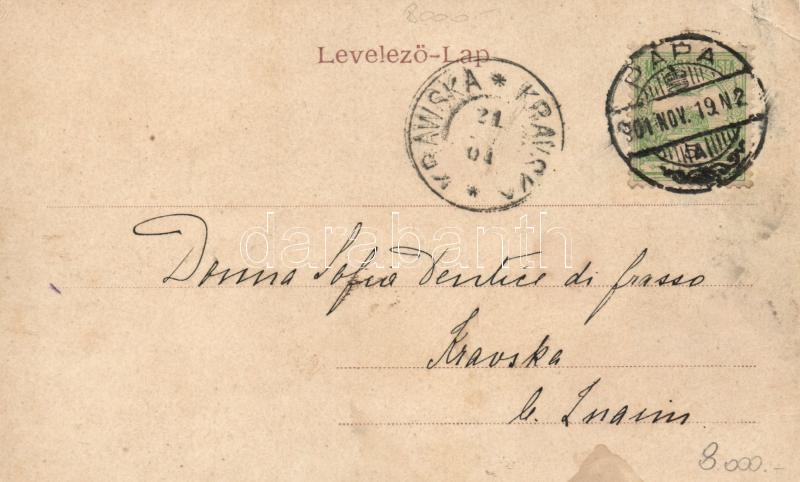 8000.-
Levelező-Lap
KRAWSKA * KRAVSKO *
21
01
PÁPA
901 NOV. 19. N2
darabanth
Donna Sofia Dentice di frasso
Kravska
b. Znaim
8.000.-